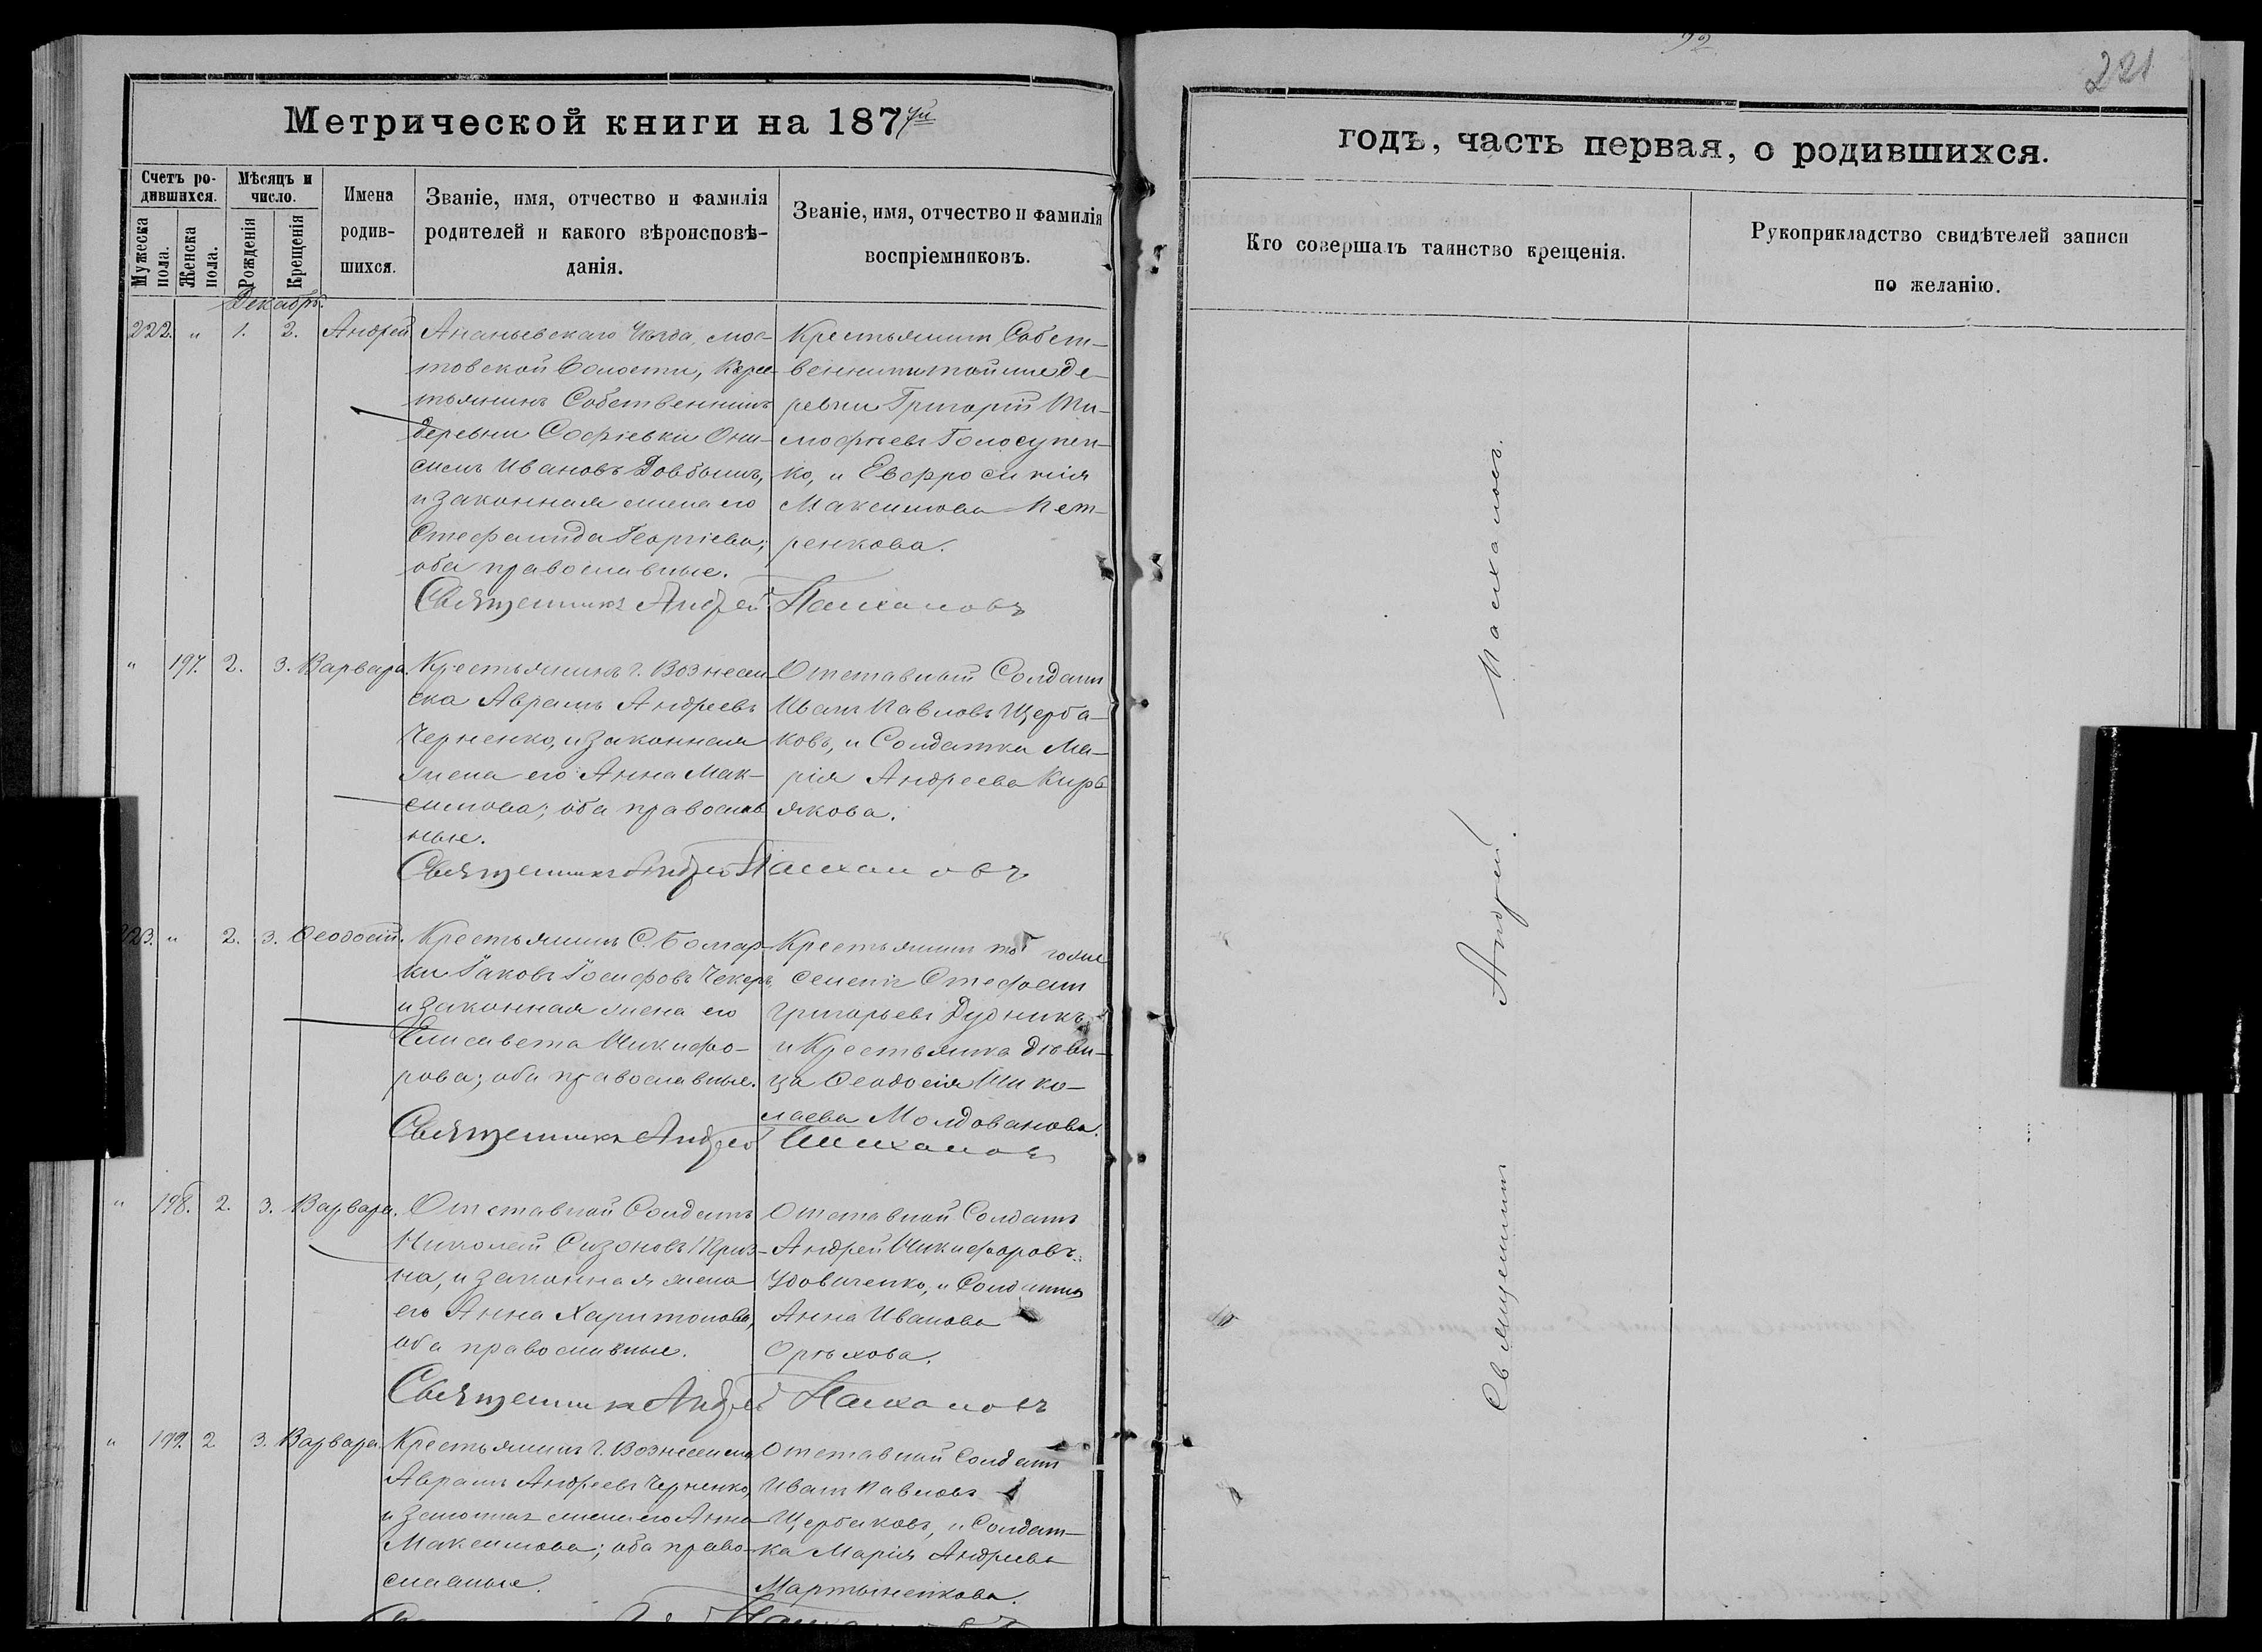 92
221
Метрической книги на 187 7й
годъ, часть первая, о родившихся.
Счетъ ро-
дившихся.
Мужеска
пола.
Женска
пола.
Мѣсяцъ и
число.
Рожденія
Крещенія
Имена
родив-
шихся.
Званіе, имя, отчество и фамилія
родителей и какого вѣроисповѣ-
данія.
Званіе, имя, отчество и фамилія
воспріемниковъ.
Кто совершалъ таинство крещенія.
Рукоприкладство свидѣтелей записи
по желанію.
Декабрь.
222. " 1. 2. Андрей
Ананьевскаго Уѣзда, мос-
товской Волости, Крес-
тьянинъ Собственникъ
деревни Софіевки Они-
симъ Ивановъ Довбышъ,
и законная жена его
Стефанида Георгіева;
оба православные.
Крестьянинъ Собст-
венникъ той же де-
ревни Григорій Ти-
мофѣевъ Голосупен-
ко, и Евфросинія
Максимова Пет-
ренкова.
Священникъ Андрей Пасхаловъ
" 197. 2. 3. Варвара.
Крестьянинъ г. Вознесен
ска Аврамъ Андреевъ
Черненко, и законная
жена его Анна Мак-
симова; оба православ
ные.
Отставный Солдатъ
Иванъ Павловъ Щерба-
ковъ, и Солдатка Ма-
рія Андреева Кирь
якова.
Священникъ Андрей Пасхаловъ
223. " 2. 3. Ѳеодосій.
Крестьянинъ С. Болгар-
ки Іаковъ Іосифовъ Чекеръ,
и законная жена его
Елисавета Никифо-
рова; оба православные.
Крестьянинъ того же
селенія Стефанъ
Григорьевъ Дудникъ,
и Крестьянка дѣви-
ца Ѳеодосія Нико-
лаева Молдованова.
Священникъ Андрей Пасхаловъ
" 198. 2. 3. Варвара.
Отставной Солдатъ
Николай Сизоновъ
на, и законная жена
его Анна Харитонова,
оба православные.
Отставной Солдатъ
Андрей Никифоровъ
Удовиченко, и Солдатка
Анна Иванова
Орѣхова.
Священникъ Андрей Пасхаловъ
" 199. 2 3. Варвара.
Крестьянинъ г. Вознесенска
Аврамъ Андреевъ Черненко,
и законная жена его Анна
Максимова; оба право-
славные.
Отставной Солдатъ
Иванъ Павловъ
Щербаковъ, и Солдат-
ка Марія Андреева
Мартыненкова.
Священникъ Андрей Пасхаловъ.